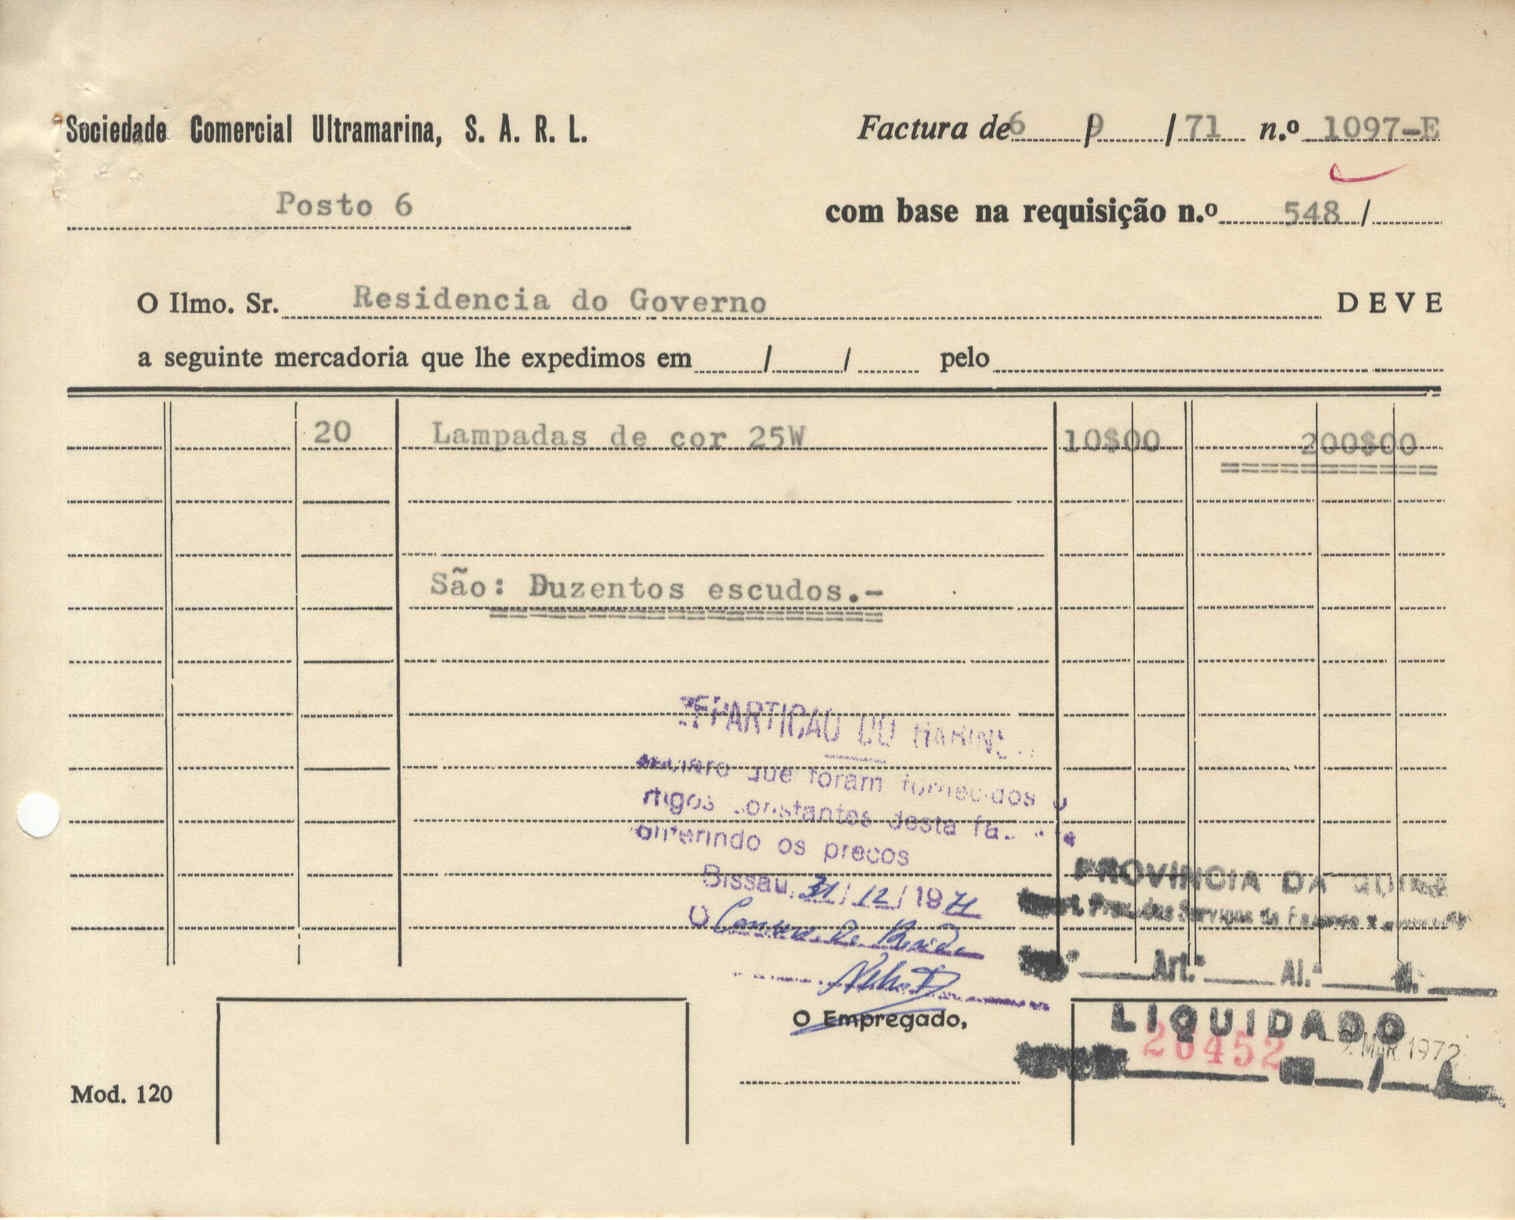 Sociedade Comercial Ultramarina, S. A. R. L.
Factura de 6 / 9 / 71 n.º 1097-E
Posto 6
com base na requisição n.º 548 /
O Ilmo. Sr. Residencia do Governo DEVE
a seguinte mercadoria que lhe expedimos em / / pelo
20 Lampadas de cor 25W 10$00 200$00
São: Duzentos escudos.-
que foram fornecidos
constantes desta
os preços
Bissau, 31/12/1971
O
PROVINCIA DA
Art.º Al.ª
O Empregado,
LIQUIDADO
20452
MAR. 1972
Mod. 120